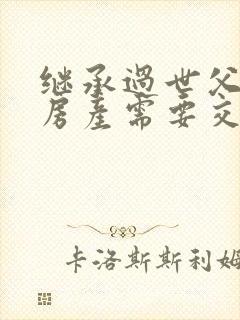 继承过世父
房产需要交
卡洛斯斯利姆